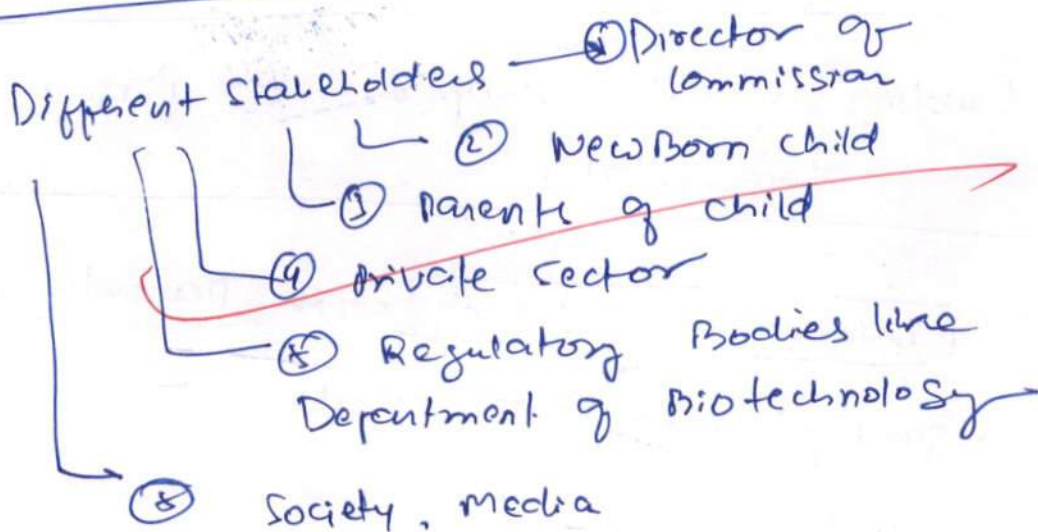 Different Stakeholders ① Director of
Commission
② New Born child
③ Parents of child
④ Private sector
⑤ Regulatory Bodies like
Department of Biotechnology
⑧ Society, Media